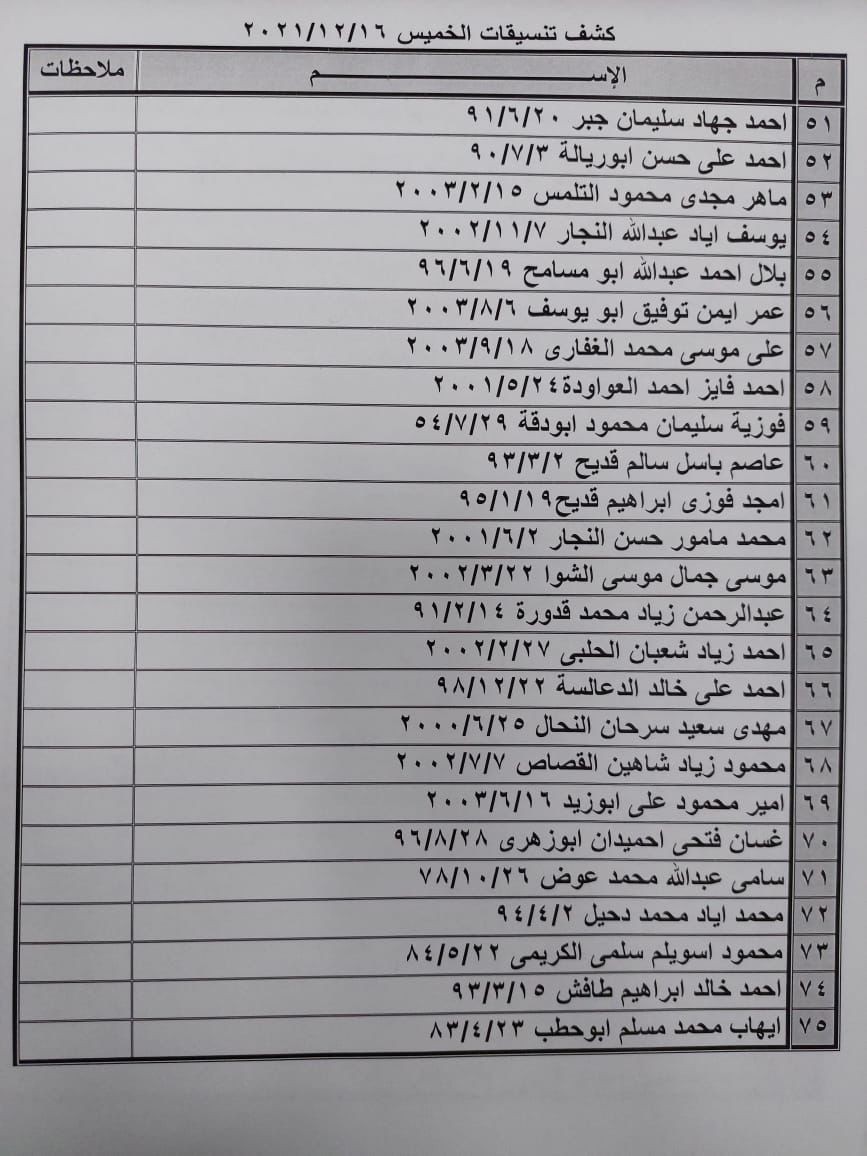 كشف تنسيقات الخميس ٢٠٢١/١٢/١٦
م الإســـــــــــــــــــم ملاحظات
٥١ احمد جهاد سليمان جبر ٩١/٦/٢٠
٥٢ احمد على حسن ابوريالة ٩٠/٧/٣
٥٣ ماهر مجدى محمود التلمس ٢٠٠٣/٢/١٥
٥٤ يوسف اياد عبدالله النجار ٢٠٠٢/١١/٧
٥٥ بلال احمد عبدالله ابو مسامح ٩٦/٦/١٩
٥٦ عمر ايمن توفيق ابو يوسف ٢٠٠٣/٨/٦
٥٧ على موسى محمد الغفارى ٢٠٠٣/٩/١٨
٥٨ احمد فايز احمد العواودة٢٠٠١/٥/٢٤
٥٩ فوزية سليمان محمود ابودقة ٥٤/٧/٢٩
٦٠ عاصم باسل سالم قديح ٩٣/٣/٢
٦١ امجد فوزى ابراهيم قديح٩٥/١/١٩
٦٢ محمد مامور حسن النجار ٢٠٠١/٦/٢
٦٣ موسى جمال موسى الشوا ٢٠٠٢/٣/٢٢
٦٤ عبدالرحمن زياد محمد قدورة ٩١/٢/١٤
٦٥ احمد زياد شعبان الحلبى ٢٠٠٢/٢/٢٧
٦٦ احمد على خالد الدعالسة ٩٨/١٢/٢٢
٦٧ مهدى سعيد سرحان النحال ٢٠٠٠/٦/٢٥
٦٨ محمود زياد شاهين القصاص ٢٠٠٢/٧/٧
٦٩ امير محمود على ابوزيد ٢٠٠٣/٦/١٦
٧٠ غسان فتحى احميدان ابوزهرى ٩٦/٨/٢٨
٧١ سامى عبدالله محمد عوض ٧٨/١٠/٢٦
٧٢ محمد اياد محمد دحيل ٩٤/٤/٢
٧٣ محمود اسويلم سلمى الكريمى ٨٤/٥/٢٢
٧٤ احمد خالد ابراهيم طافش ٩٣/٣/١٥
٧٥ ايهاب محمد مسلم ابوحطب ٨٣/٤/٢٣